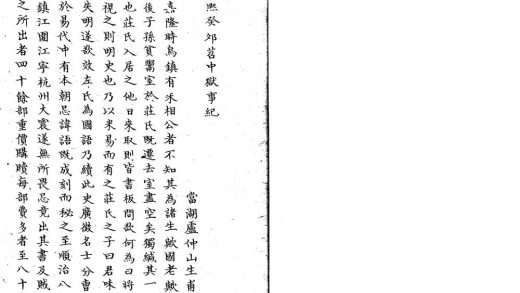 熙癸卯苕中獄事紀
當湖盧仲山生甫
嘉隆時烏鎮有朱相公者不知其為諸生歟國老歟
後子孫貧鬻室於莊氏既遷去室盡空矣獨緘其一
也莊氏入居之他日來取則皆書板問欲何為曰將
視之則明史也乃以米易而有之莊氏之子曰君味
失明遂欲效左氏為國語乃續此史廣徵名士分曹
於易代中有本朝忌諱語既成刻而秘之至順治八
鎮江圍江寧杭州大震遂無所畏忌竟出其書及賊
之所出者四十餘部重價購贖每部費多者至八十